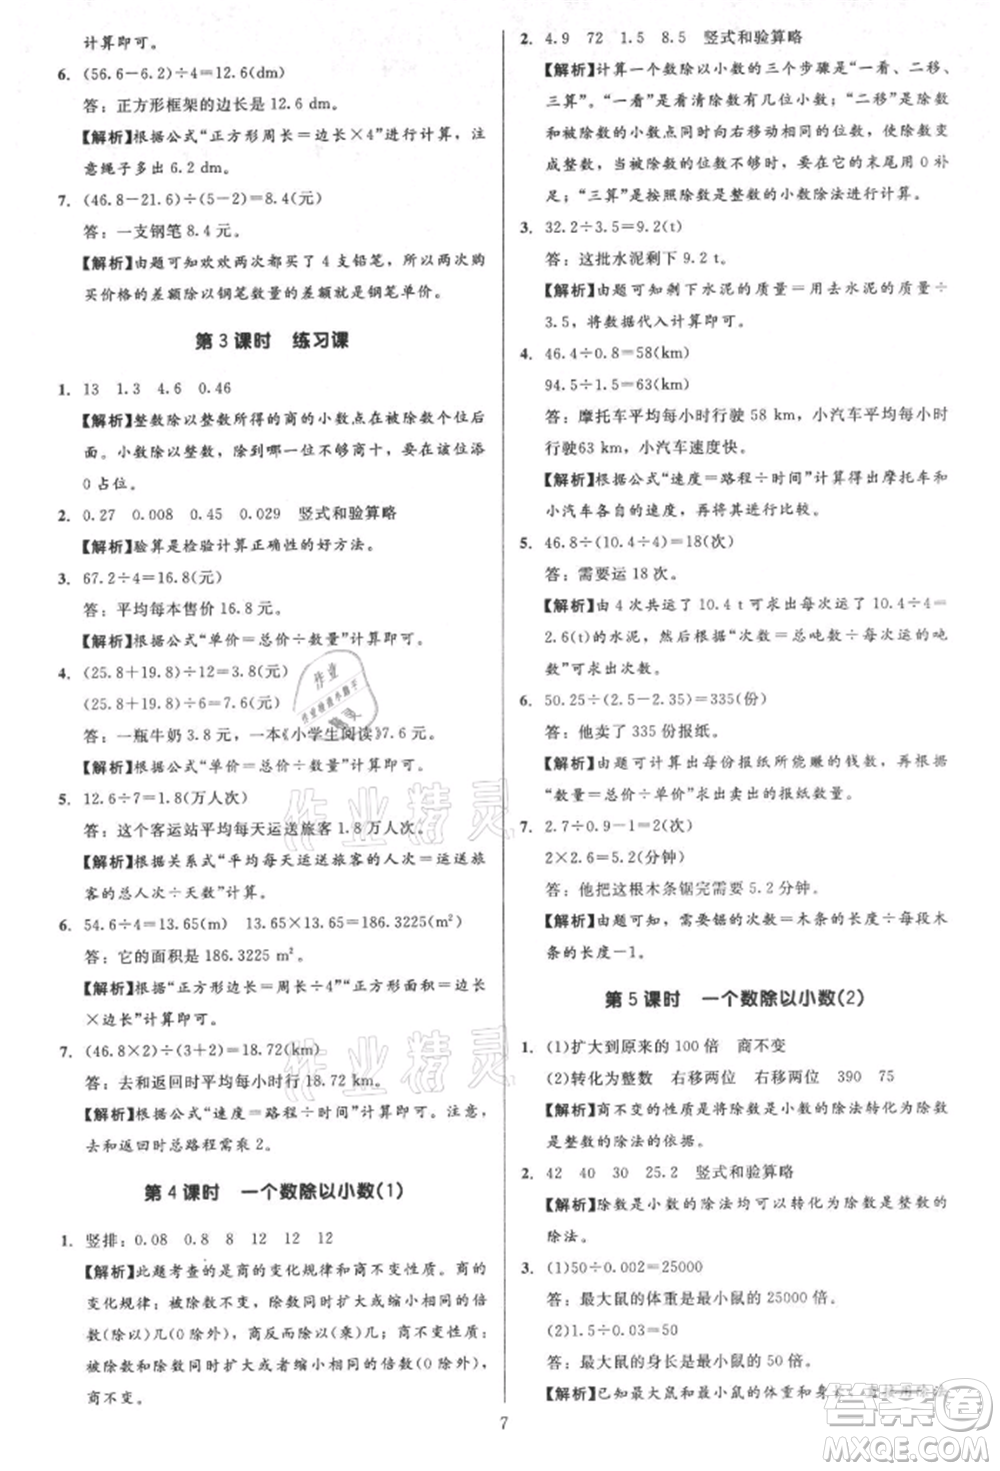 计算即可。
6. (56.6－6.2)÷4＝12.6(dm)
答：正方形框架的边长是 12.6 dm。
【解析】根据公式“正方形周长＝边长×4”进行计算，注
意绳子多出 6.2 dm。
7. (46.8－21.6)÷(5－2)＝8.4(元)
答：一支钢笔 8.4 元。
【解析】由题可知欢欢两次都买了 4 支铅笔，所以购
买价格的差额除以钢笔数量的差额就是钢笔单价。
第 3 课时 练习课
1. 13 1.3 4.6 0.46
【解析】整数除以整数所得的商的小数点在被除数个位后
面。小数除以整数，除到哪一位不够商十，在该位添
0 占位。
2. 0.27 0.008 0.45 0.029 竖式和验算略
【解析】验算是检验计算正确性的好方法。
3. 67.2÷4＝16.8(元)
答：平均每本售价 16.8 元。
【解析】根据公式“单价＝总价÷数量”计算即可。
4. (25.8＋19.8)÷12＝3.8(元)
(25.8＋19.8)÷6＝7.6(元)
答：一瓶牛奶 3.8 元，一本《小学生阅读》7.6 元。
【解析】根据公式“单价＝总价÷数量”计算即可。
5. 12.6÷7＝1.8(万人次)
答：这个客运站平均每天运送旅客 1.8 万人次。
【解析】根据关系式“平均每天运送旅客的人次＝运送旅
客的总人次÷天数”计算。
6. 54.6÷4＝13.65(m) 13.65×13.65＝186.3225(m²)
答：它的面积是 186.3225 m²。
【解析】根据“正方形边长＝周长÷4”“正方形面积＝边长
×边长”计算即可。
7. (46.8×2)÷(3＋2)＝18.72(km)
答：去和返回时平均每小时行 18.72 km。
【解析】根据公式“速度＝路程÷时间”计算即可。注意，
去和返回时总路程需乘 2。
第 4 课时 一个数除以小数(1)
1. 竖排：0.08 0.8 8 12 12 12
【解析】此题考查的是商的变化规律和商不变规律。商的
变化规律：被除数不变，除数扩大或缩小几倍(0 除外)
数(除以)几(0 除外)，商反而除以(乘)几(0 除外)；
被除数和除数同时扩大或者缩小相同的倍数(0 除外)，
商不变。
2. 4.9 72 1.5 8.5 竖式和验算略
【解析】计算一个数除以小数的三个步骤是“一看、二移、
三算”。“一看”是看清除数有几位小数；“二移”是把除数
和被除数的小数点同时向右移动相同的位数，使除数变
成整数，当被除数的位数不够时，要在它的末尾用 0 补
足；“三算”是按照除数是整数的小数除法进行计算。
3. 32.2÷3.5＝9.2(t)
答：这批水泥剩下 9.2 t。
【解析】由题可知剩下水泥的质量＝用去水泥的质量÷
3.5，将数据代入计算即可。
4. 46.4÷0.8＝58(km)
94.5÷1.5＝63(km)
答：摩托车平均每小时行驶 58 km，小汽车平均每小时
行驶63 km，小汽车速度快。
【解析】根据公式“速度＝路程÷时间”计算出摩托车和
小汽车各自的速度，再进行比较。
5. 46.8÷(10.4÷4)＝18(次)
答：需要运 18 次。
【解析】由 4 次共运了 10.4 t 可求出每次可以运
2.6(t)的水泥，然后根据“次数＝总吨数÷每次运的吨
数”可求出次数。
6. 50.25÷(2.5－2.35)＝335(份)
答：他卖了 335 份报纸。
【解析】由题可计算出每份报纸所能赚的钱数，再根据
“数量＝总价÷单价”求出卖出的报纸数量。
7. 2.7÷0.9－1＝2(次)
2×2.6＝5.2(分钟)
答：他把这根木条锯完需要 5.2 分钟。
【解析】由题可知，需要锯的次数＝木条的长度÷每段木
条的长度－1。
第 5 课时 一个数除以小数(2)
1. (1)扩大到原来的 100 倍 商不变
(2)转化为整数 右移两位 右移两位 390 75
【解析】商不变的性质是将除数是小数的除法转化为除数
是整数的除法的依据。
2. 42 40 30 25.2 竖式和验算略
【解析】除数是小数的除法均可以转化为除数是整数的
除法。
3. (1)50÷0.002＝25000
答：最大鼠的体重是最小鼠的 25000 倍。
(2)1.5÷0.03＝50
答：最大鼠的身长是最小鼠的 50 倍。
【解析】已知最大鼠和最小鼠的体重和身长，
7
作业精灵
作业精灵
答案圈
MXQE.COM